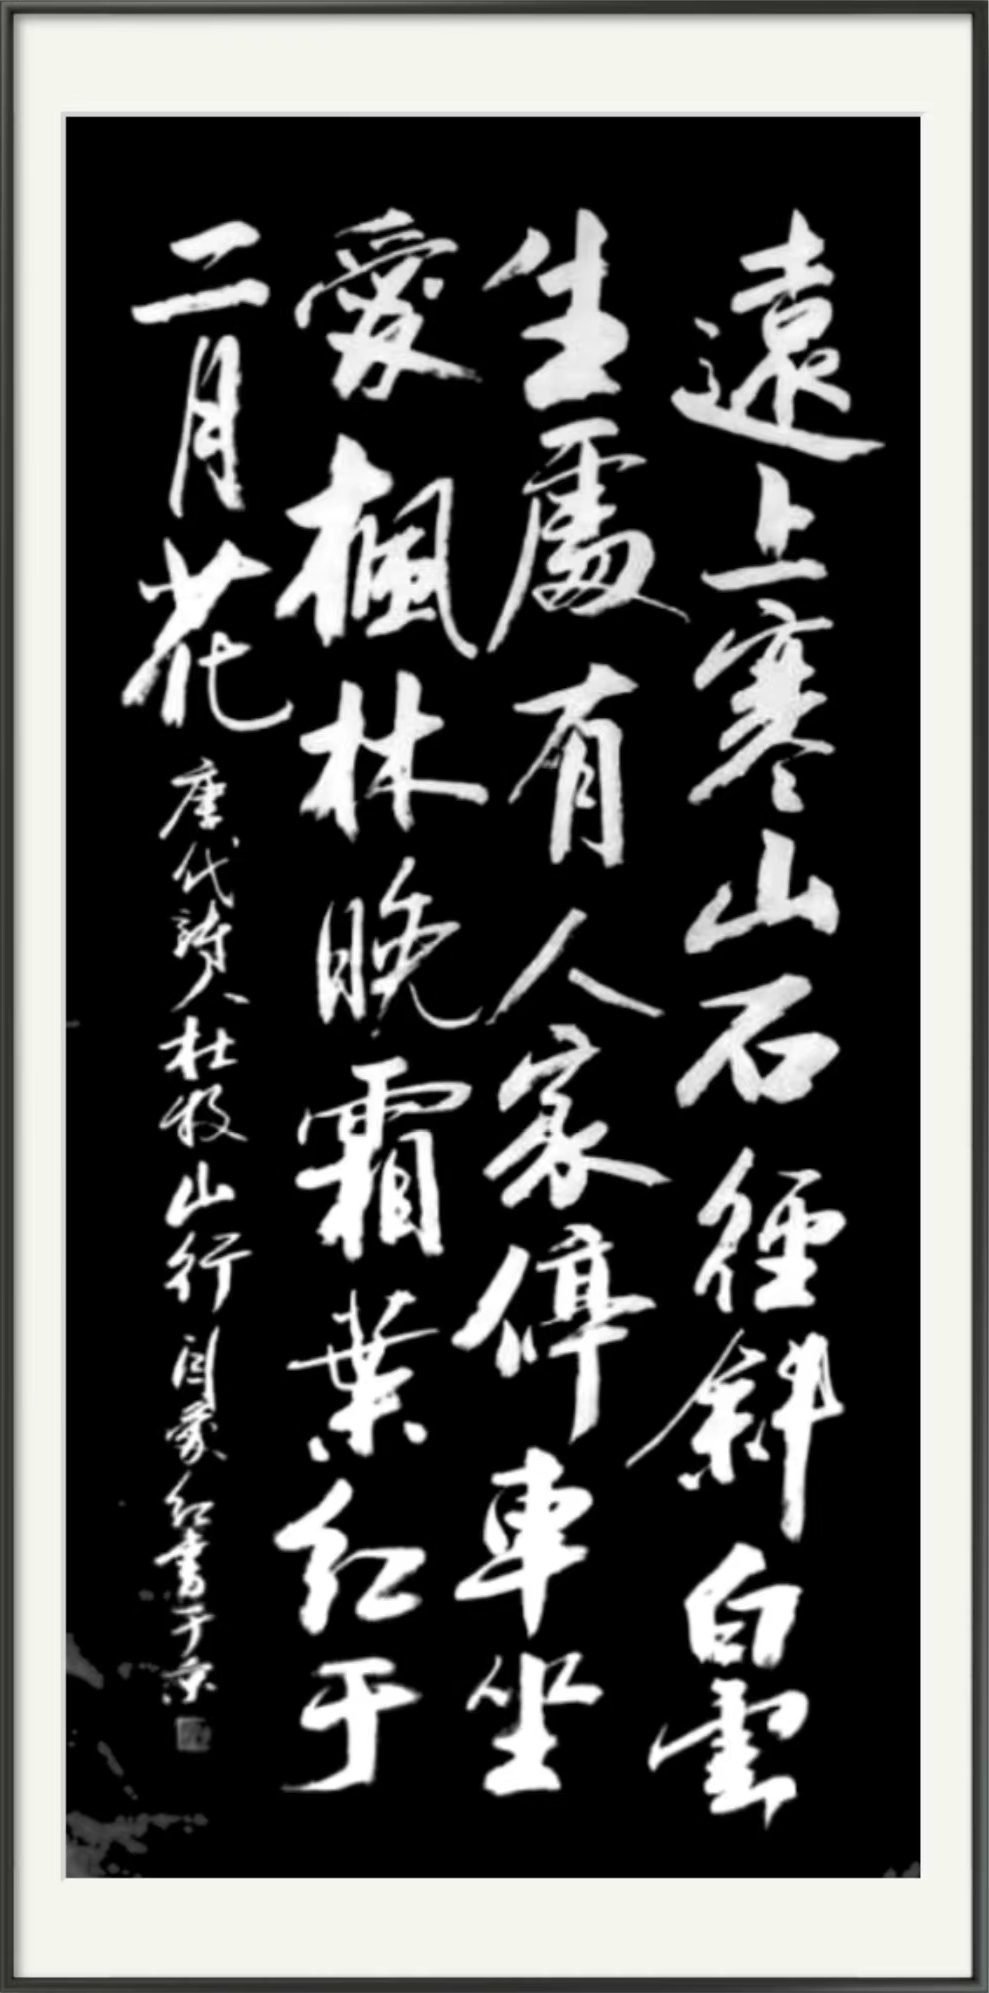 遠上寒山石徑斜白雲
生處有人家停車坐
愛楓林晚霜葉紅于
二月花
唐代詩人杜牧山行 闫家红書于京